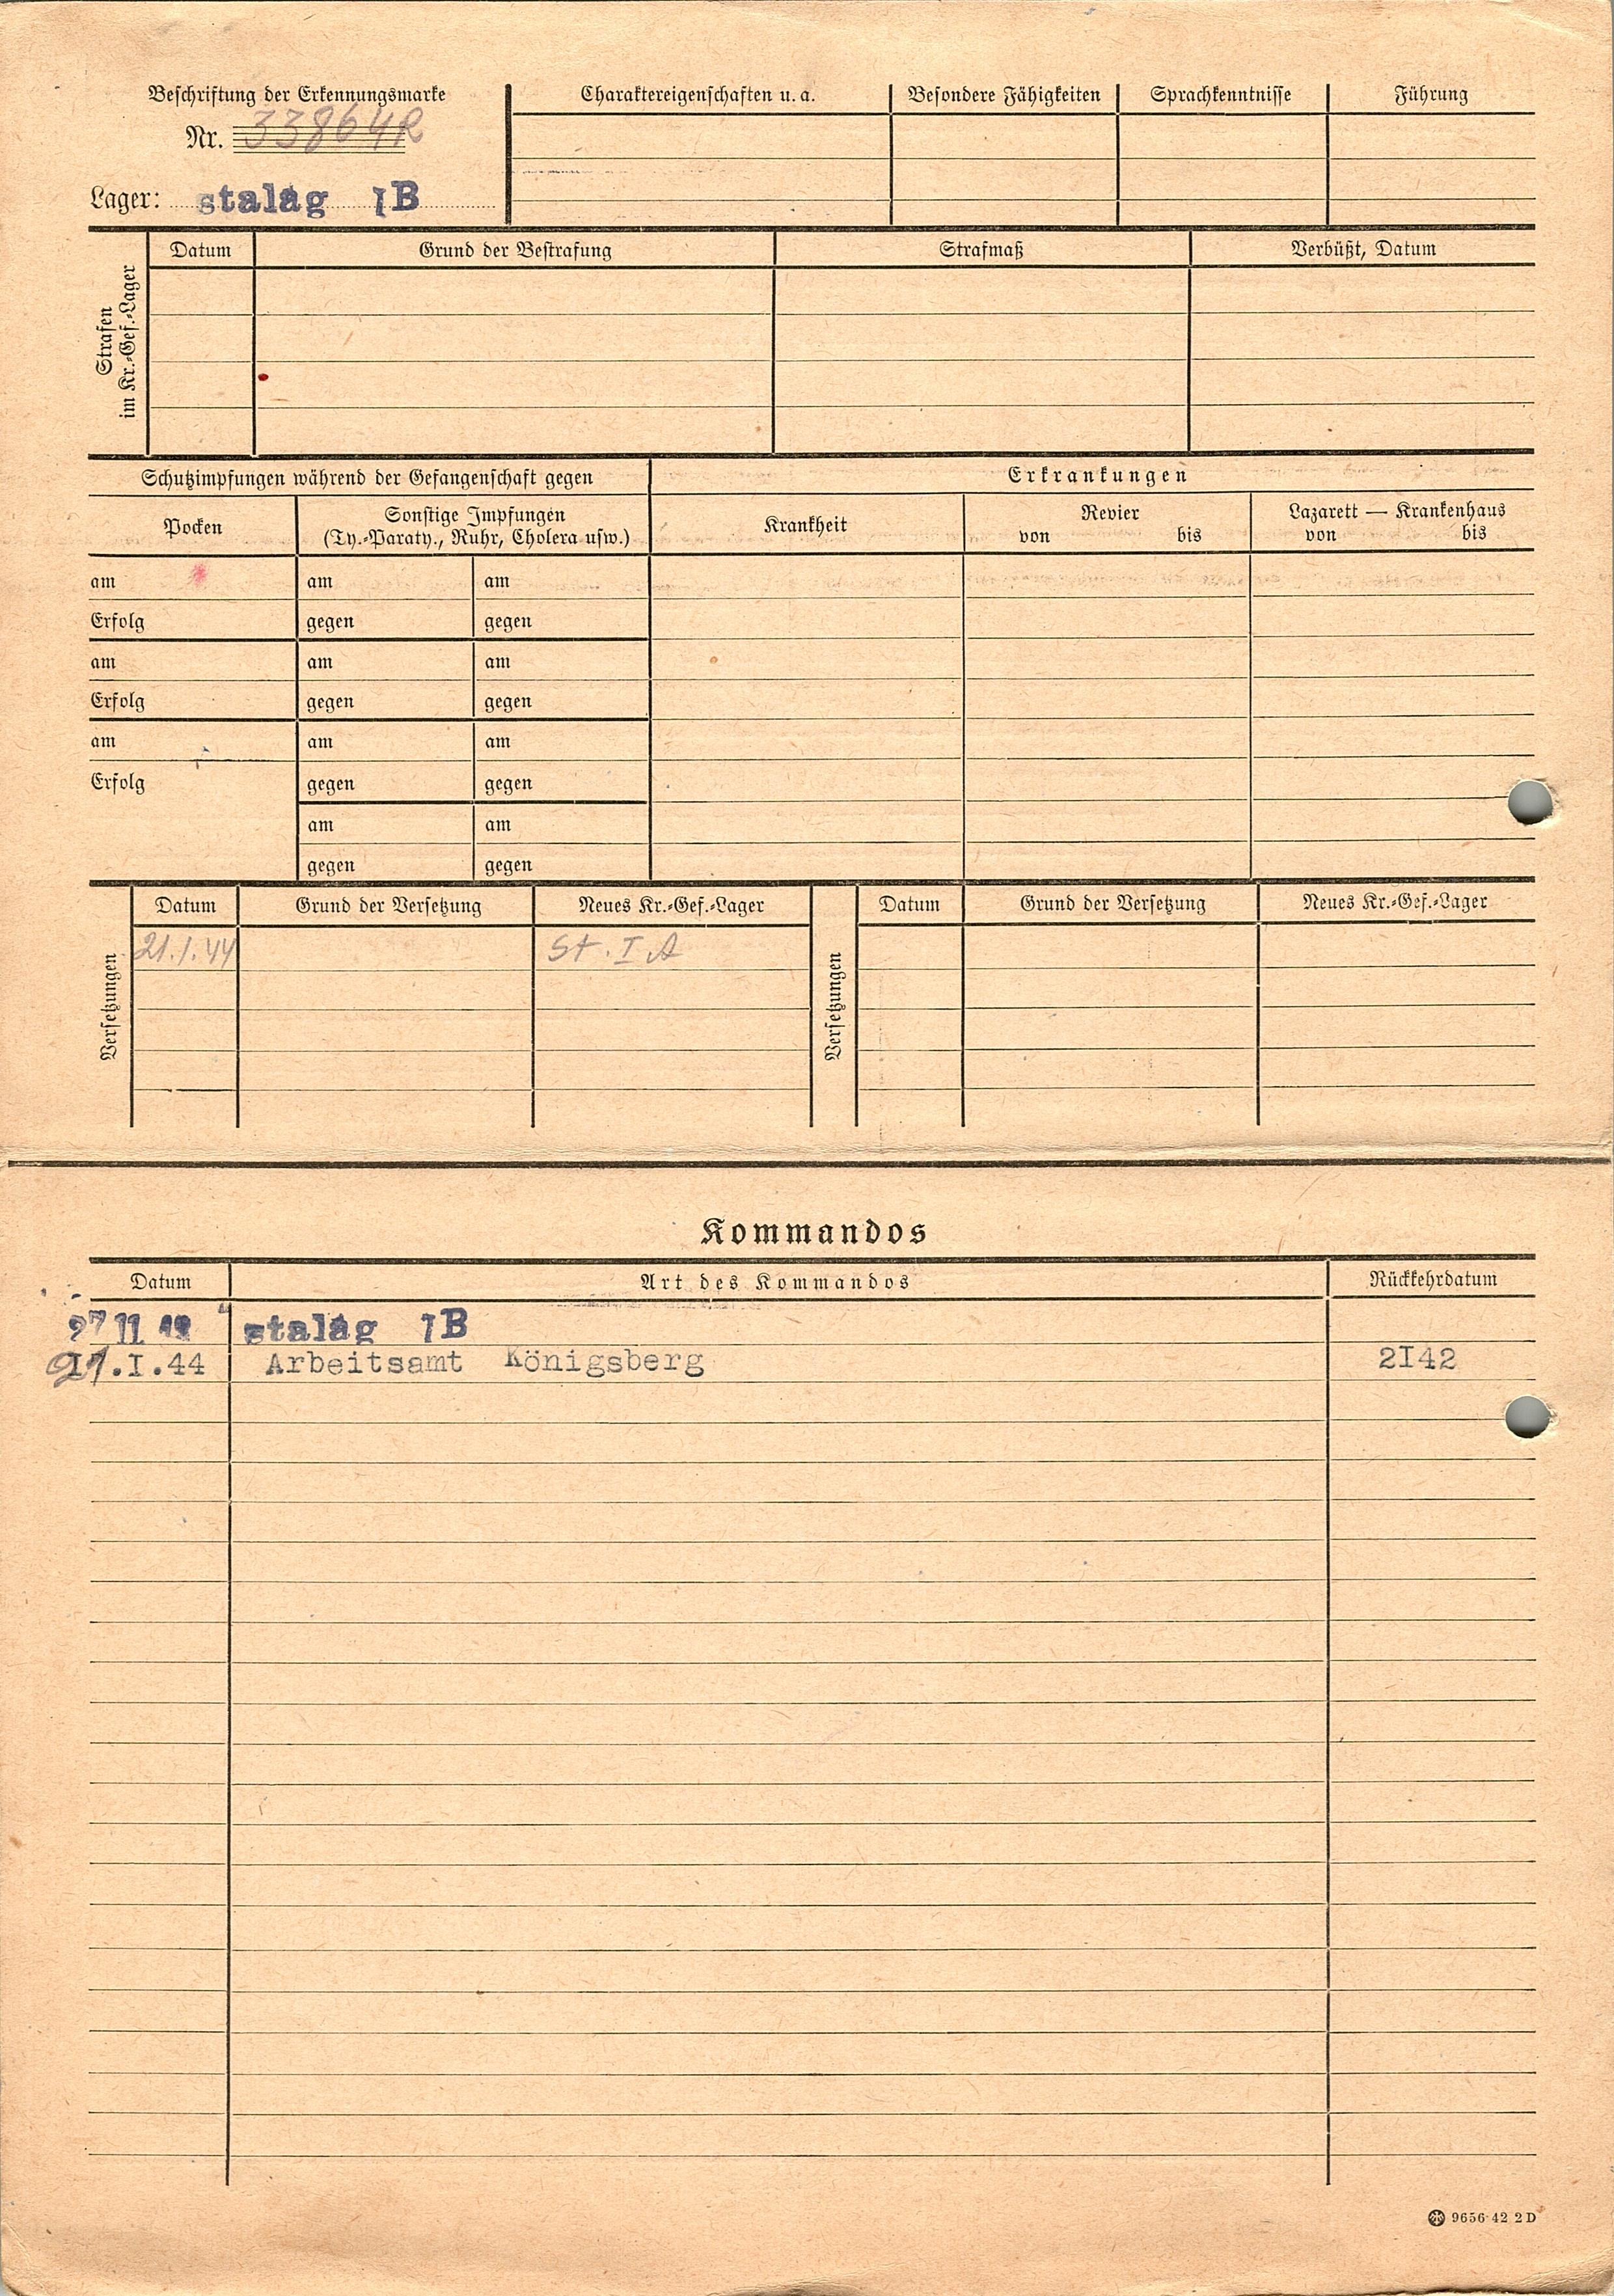 Beschriftung der Erkennungsmarke
Nr. 33864R
Lager: stalag IB
Charaktereigenschaften u. a. Besondere Fähigkeiten Sprachkenntnisse Führung
Strafen
im Kr.-Gef.-Lager
Datum Grund der Bestrafung Strafmaß Verbüßt, Datum
Schutzimpfungen während der Gefangenschaft gegen
Erkrankungen
Pocken
Sonstige Impfungen
(Ty.-Paraty., Ruhr, Cholera usw.)
Krankheit
Revier
von bis
Lazarett — Krankenhaus
von bis
am am am
Erfolg gegen gegen
am am am
Erfolg gegen gegen
am am am
Erfolg gegen gegen
am am
gegen gegen
Versetzungen
Datum Grund der Versetzung Neues Kr.-Gef.-Lager
21.1.44 St. I A
Versetzungen
Datum Grund der Versetzung Neues Kr.-Gef.-Lager
Kommandos
Datum Art des Kommandos Rückkehrdatum
27 11 stalag IB
21.I.44 Arbeitsamt Königsberg 2I42
9656 42 2 D